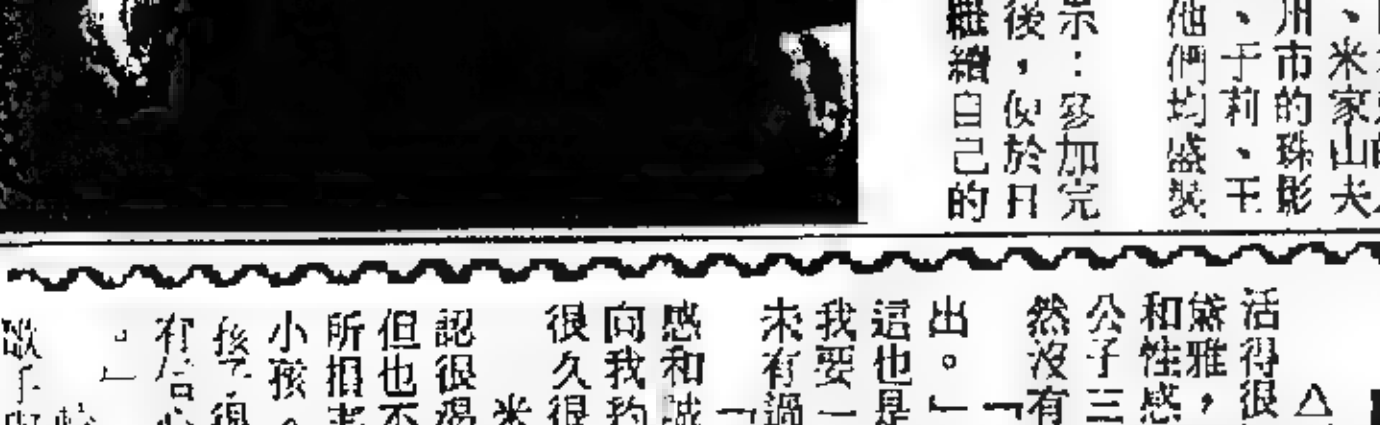 、米家山夫
州市的珠影
、于莉、王
他們均盛裝
示：參加完
後，便於日
繼續自己的
△
活得很
黛雅，
和性感
公子三
然沒有
「
出。」
這也是
我要一
未有過
「
感和誠
向我約
很久很
米
認很
但也不
所損害
小孩。
孩子很
有信心
。」